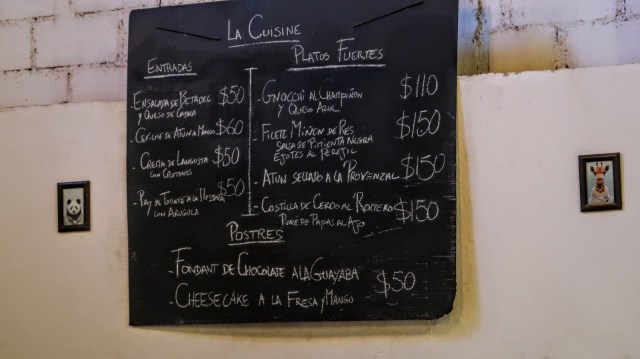 La Cuisine
Entradas
- Ensalada de Betabel $50
y Queso de Cabra
- Ceviche de Atun a Mango $60
- Crema de Langosta $50
con Crutones
- Pay de Tomate a la Mostaza $50
con Arugula
Platos Fuertes
- Gnocchi al Champiñon $110
y Queso Azul
- Filete Miñon de Res $150
Salsa de Pimienta Negra
Ejotes al Perejil
- Atun sellado a la Provenzal $150
- Costilla de Cerdo al Romero $150
Puré de Papas al Ajo
Postres
- Fondant de Chocolate a la Guayaba $50
- Cheesecake a la Fresa y Mango